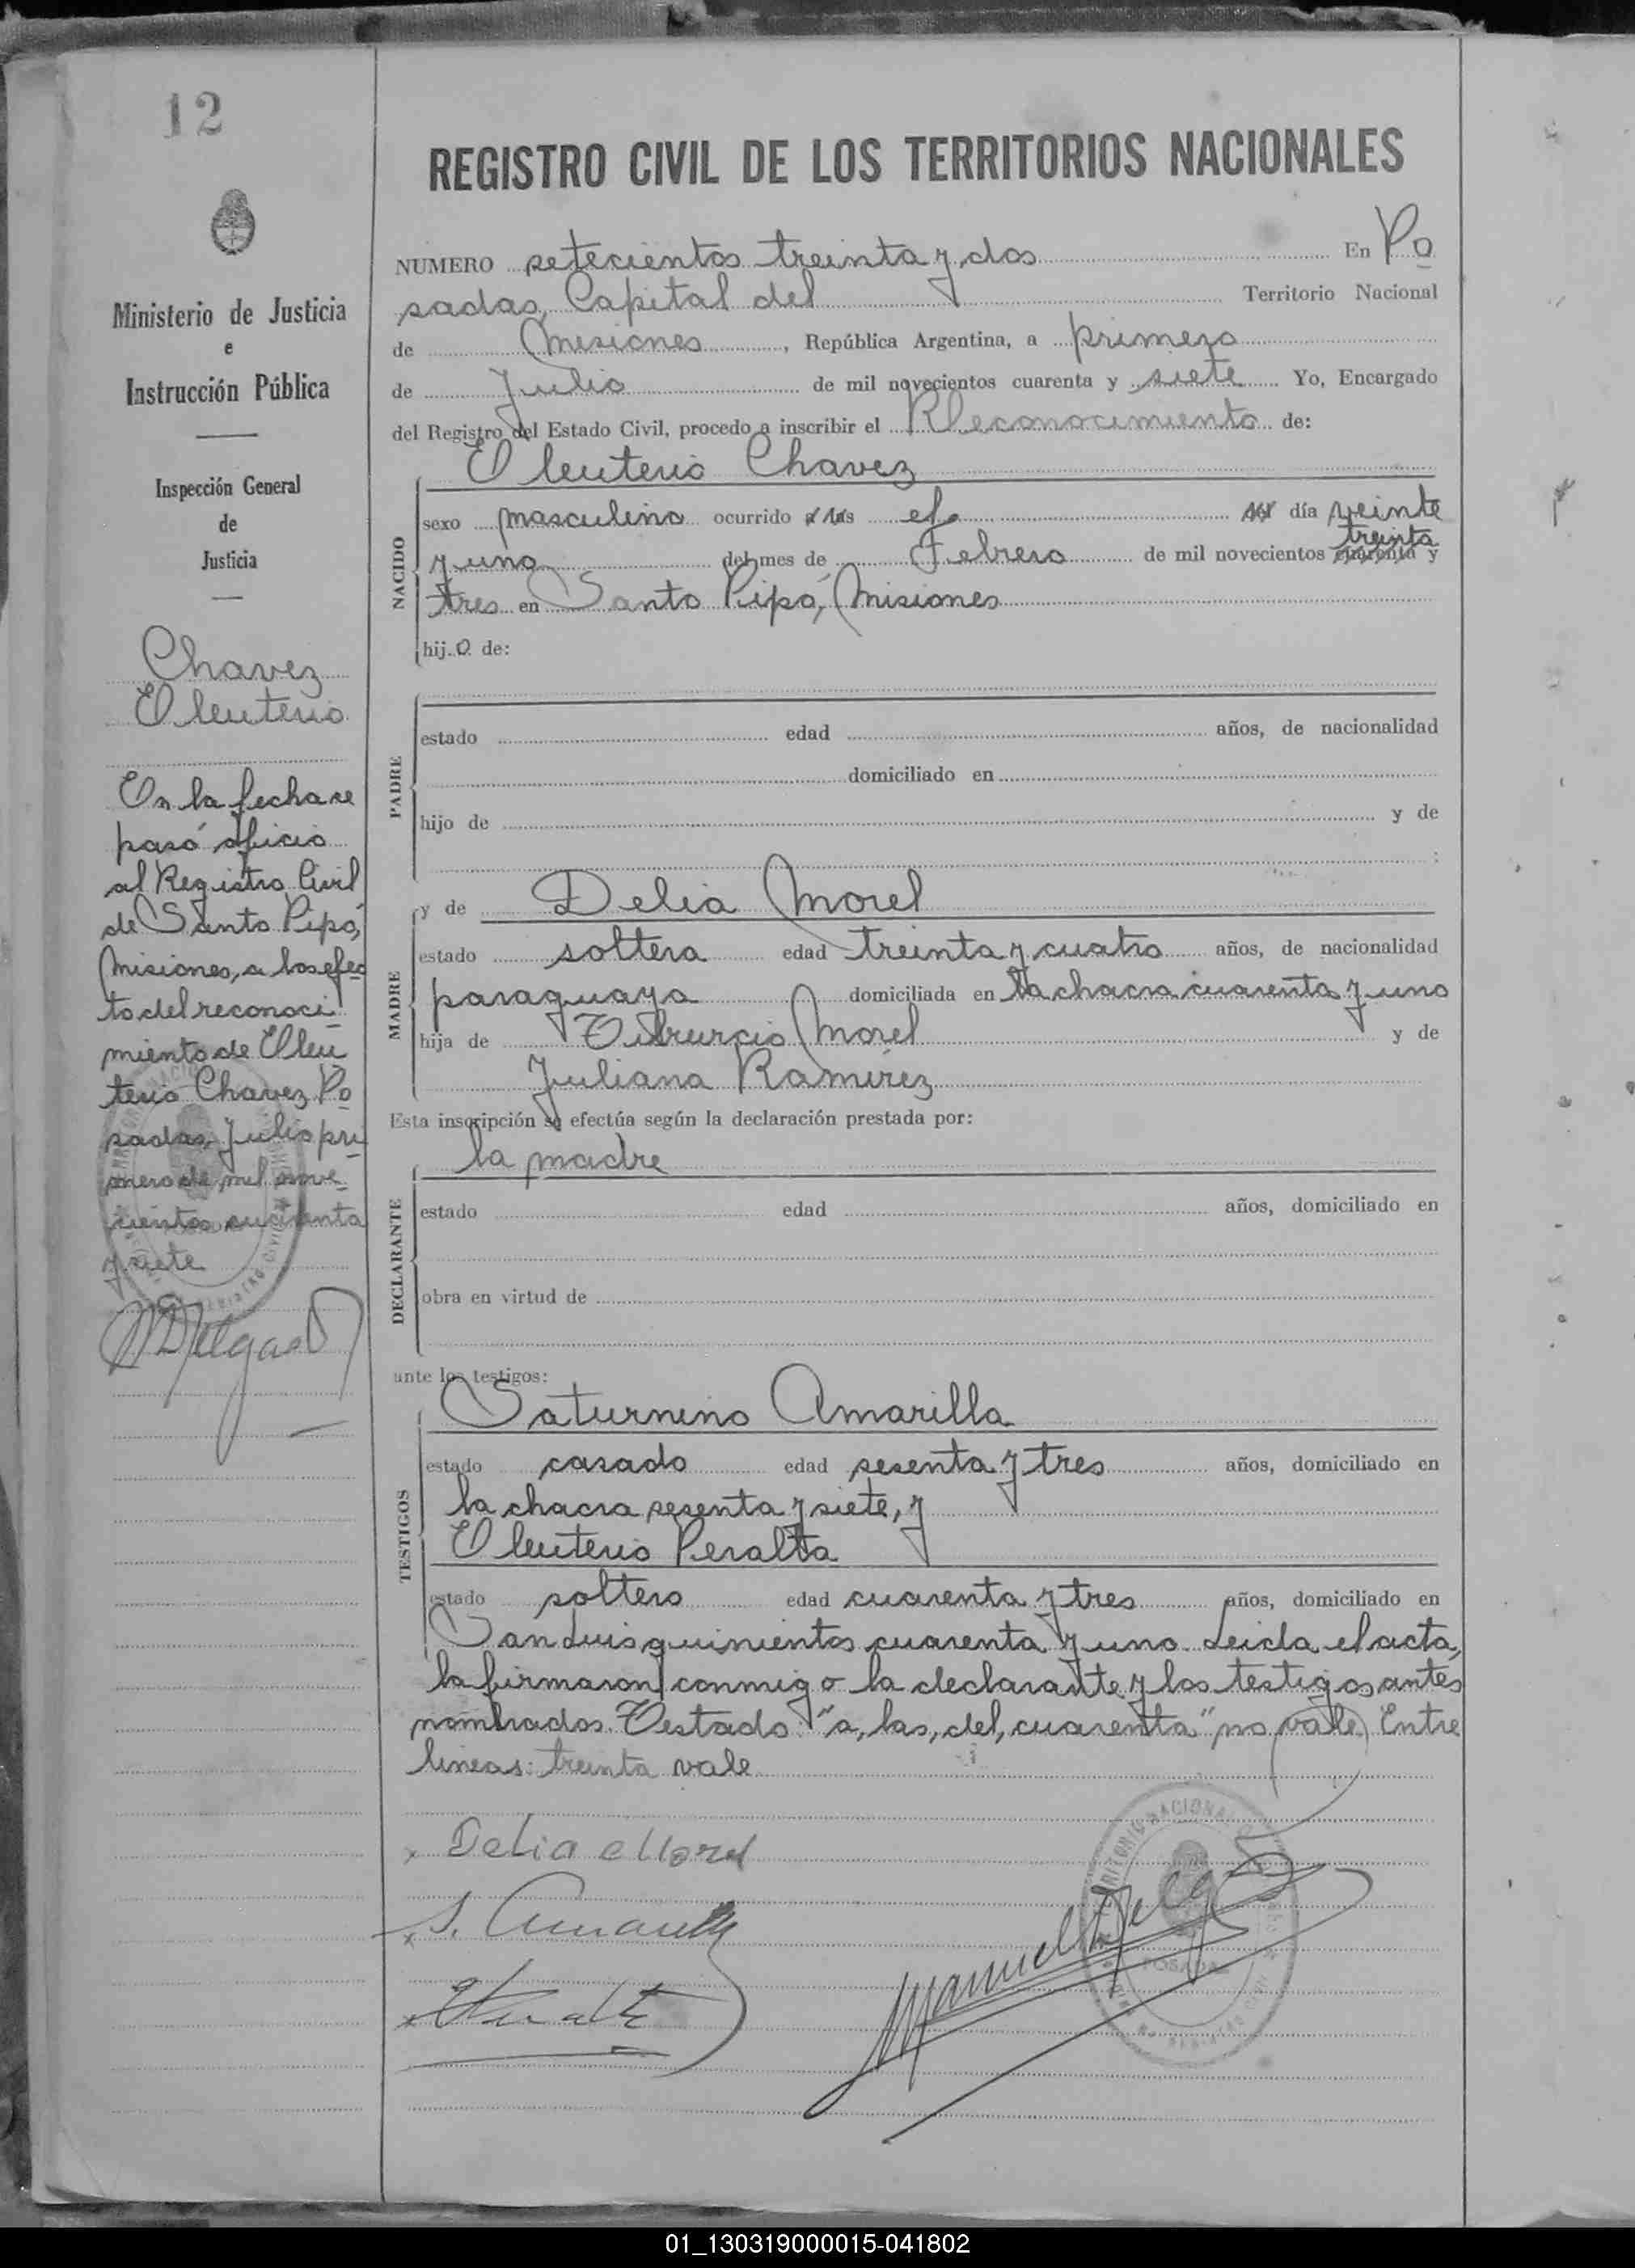 12
Ministerio de Justicia
e
Instrucción Pública
Inspección General
de
Justicia
Chavez
Eleuterio
En la fecha se
pasó oficio
al Registro Civil
de Santo Pipó,
Misiones, a los efec
to del reconoci
miento de Eleu
terio Chavez Po
sadas, Julio pri
mero de mil nove
cientos cuarenta
y siete
REGISTRO CIVIL DE LOS TERRITORIOS NACIONALES
NUMERO setecientos treinta y dos En Po
sadas, Capital del Territorio Nacional
de Misiones, República Argentina, a primero
de Julio de mil novecientos cuarenta y siete Yo, Encargado
del Registro del Estado Civil, procedo a inscribir el Reconocimiento de:
Eleuterio Chavez
NACIDO
sexo masculino ocurrido a las el del día veinte
treinta
y uno del mes de Febrero de mil novecientos cuarenta y
tres en Santo Pipó, Misiones
hijo de:
PADRE
estado edad años, de nacionalidad
domiciliado en
hijo de y de
MADRE
y de Delia Morel
estado soltera edad treinta y cuatro años, de nacionalidad
paraguaya domiciliada en la chacra cuarenta y uno
hija de Tiburcio Morel y de
Juliana Ramírez
Esta inscripción se efectúa según la declaración prestada por:
la madre
DECLARANTE
estado edad años, domiciliado en
obra en virtud de
ante los testigos:
TESTIGOS
Saturnino Amarilla
estado casado edad sesenta y tres años, domiciliado en
la chacra sesenta y siete, y
Eleuterio Peralta
estado soltero edad cuarenta y tres años, domiciliado en
San Luis quinientos cuarenta y uno. Leida el acta,
la firmaron conmigo la declarante y los testigos antes
nombrados. Testado: "a, las, del, cuarenta" no vale. Entre
lineas: treinta vale
Delia Morel
S. Amarilla
POSADAS
01_130319000015-041802